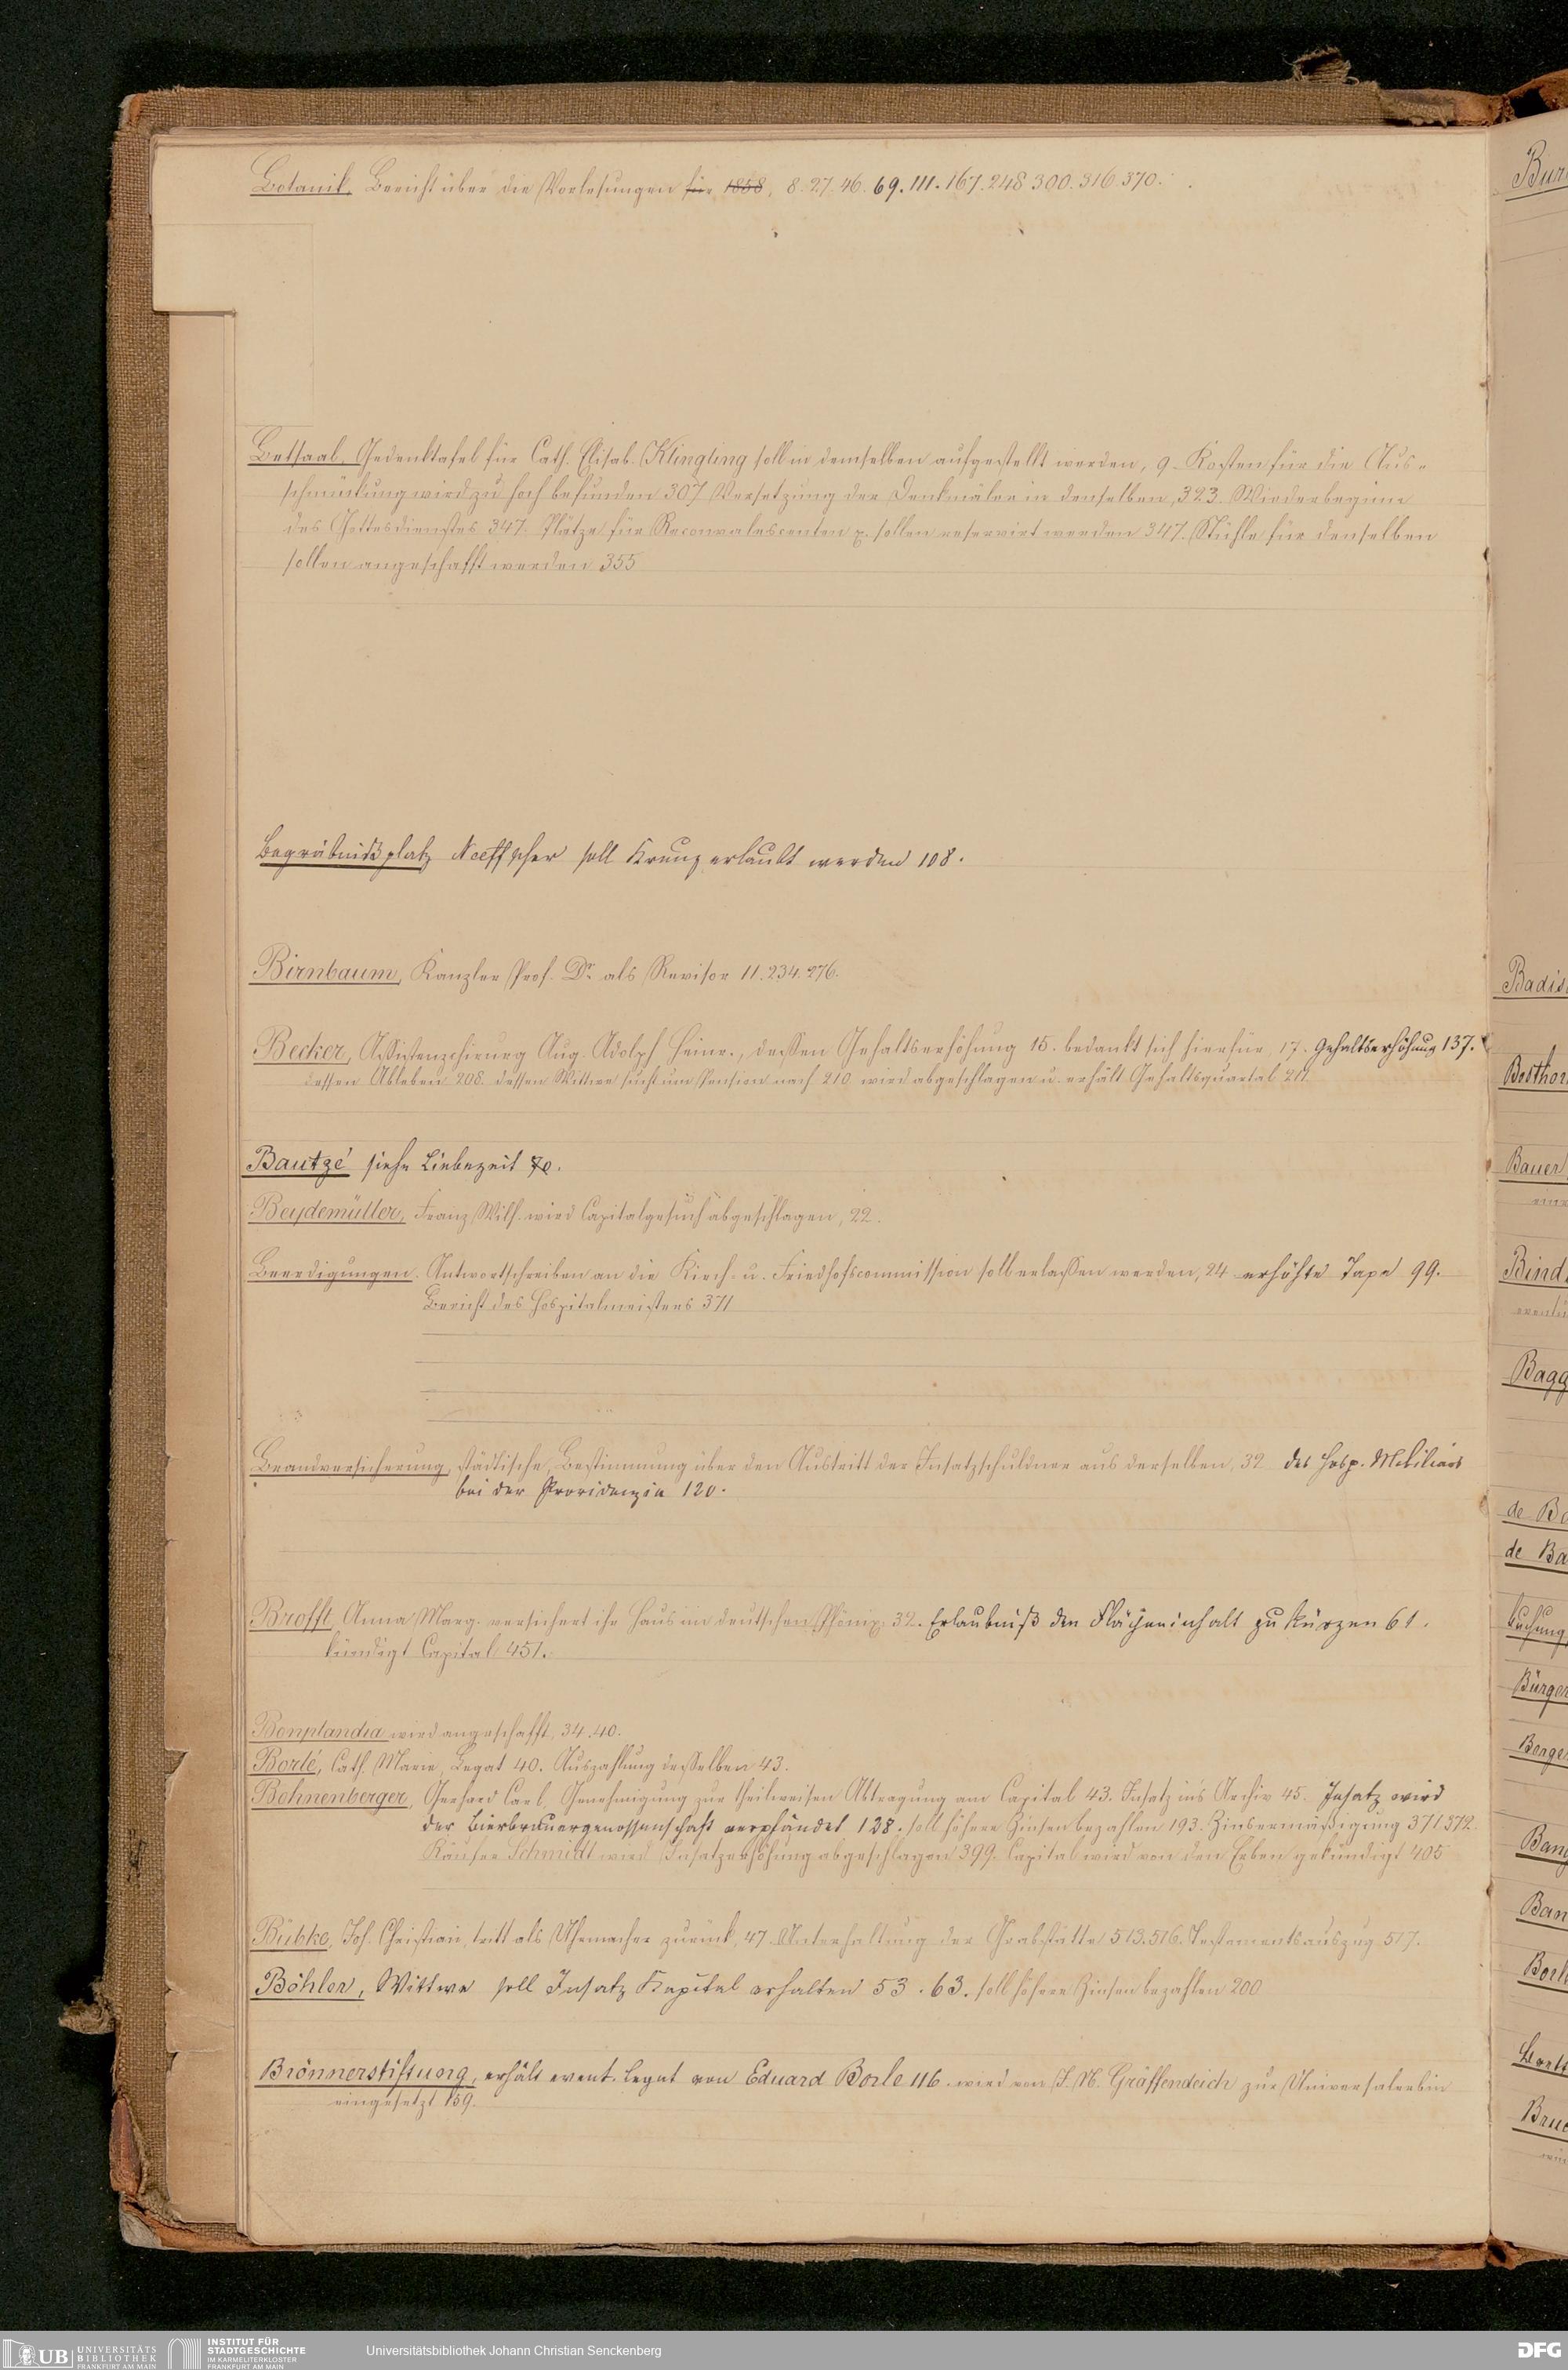 Botanik, Bericht über die Vorlesungen für 1858, 8. 27. 46. 69. 111. 167. 248 300. 316. 370.
Betsaal, Gedenktafel für Cath. Elisab. Klingling soll in demselben aufgestellt werden, 9. Kosten für die Aus-
schmückung wird zu hoch befunden 307 Versetzung der Denkmäler in denselben, 323. Wiederbeginn
des Gottesdienstes 347. Plätze für Reconvalescenten p. sollen reservirt werden 347. Stühle für denselben
sollen angeschafft werden 355
Begräbnißplatz Neeff'scher soll Kreuz erlaubt werden 108.
Birnbaum, Kanzler Prof. Dr. als Revisor 11. 234. 276.
Becker, Assistenzchirurg Aug. Adolph Heinr., dessen Gehaltserhöhung 15. bedankt sich hierfür, 17. Gehaltserhöhung 137.
dessen Ableben 208. dessen Wittwe sucht um Pension nach 210 wird abgeschlagen u. erhält Gehaltsquartal 211
Bautzé siehe Liebezeit 70.
Beydemüller, Franz Wilh. wird Capitalgesuch abgeschlagen, 22.
Beerdigungen. Antwortschreiben an die Kirch- u. Friedhofscommission soll erlassen werden, 24 erhöhte Taxe 99.
Bericht des Hospitalmeisters 371
Brandversicherung, städtische, Bestimmung über den Austritt der Insatzschuldner aus derselben, 32 des Hosp. Mobiliars
bei der Providenzia 120.
Brofft, Anna Marg. versichert ihr Haus im deutschen Phönix, 32. Erlaubniß den Flächeninhalt zu kürzen 61.
kündigt Capital 451.
Bonplandia wird angeschafft, 34. 40.
Borlé, Cath. Marie, Legat 40. Auszahlung desselben 43.
Bohnenberger, Gerhard Carl, Genehmigung zur theilweisen Abtragung am Capital 43. Insatz ins Archiv 45. Insatz wird
der Bierbrauergenossenschaft verpfändet 128. soll höhere Zinsen bezahlen 193. Zinsermäßigung 371 372.
Käufer Schmidt wird Insatzerhöhung abgeschlagen 399. Capital wird von den Erben gekündigt 405
Bübke, Joh. Christian, tritt als Uhrmacher zurück, 47 Unterhaltung der Grabstätte 513. 516. Testamentsauszug 517.
Böhler, Wittwe soll Insatz Kapital erhalten 53. 63. soll höhere Zinsen bezahlen 200
Brönnerstiftung, erhält event. Legat von Eduard Borle 116. wird von J. N. Gräffendeich zur Universalerbin
eingesetzt 159.
Badis
Bauer
Bind
Bagg
de Ba
Buchung
Bürger
UB UNIVERSITÄTS
BIBLIOTHEK
FRANKFURT AM MAIN
INSTITUT FÜR
STADTGESCHICHTE
IM KARMELITERKLOSTER
FRANKFURT AM MAIN
Universitätsbibliothek Johann Christian Senckenberg
DFG